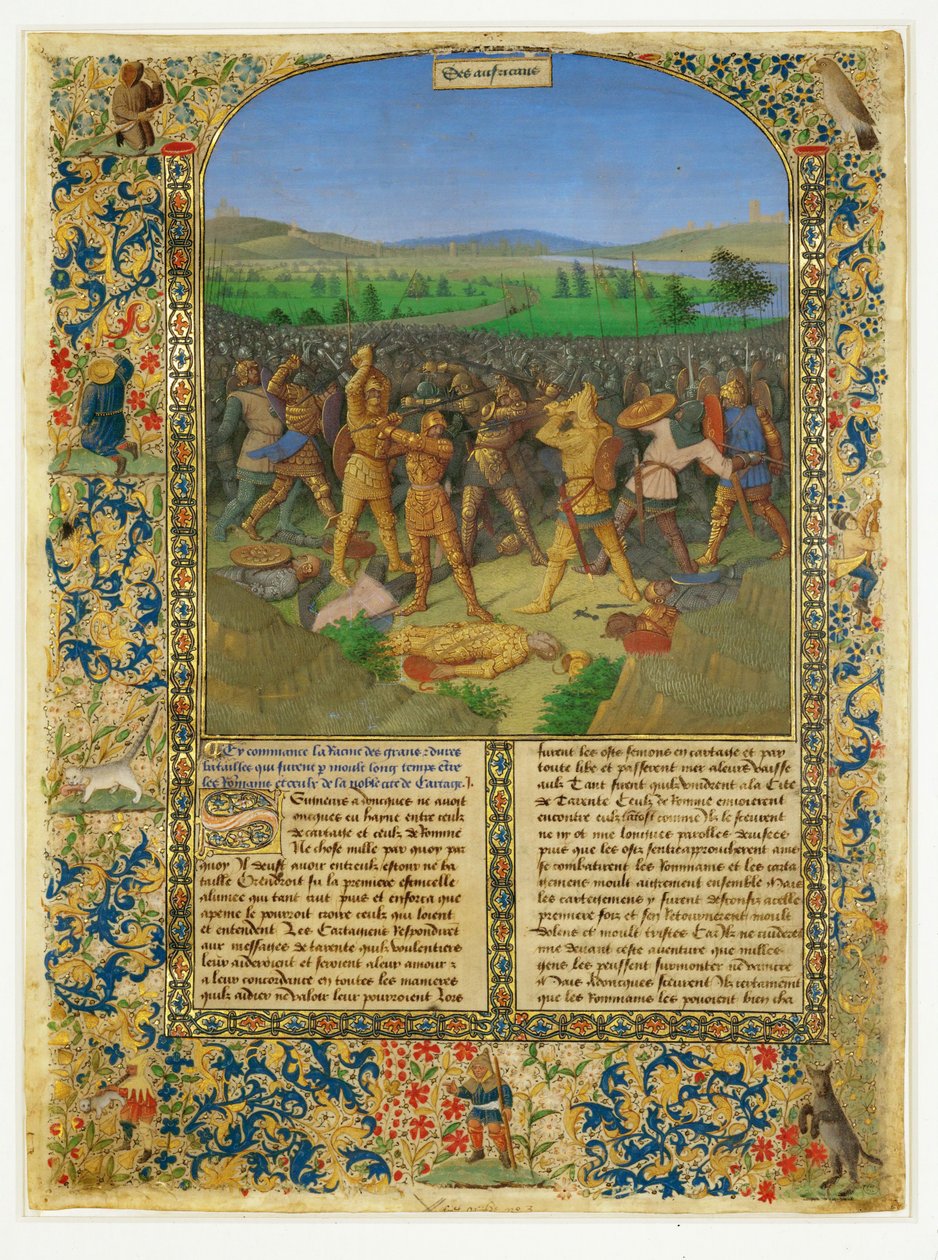 Des aufricans
Cy commance la Racine des grans & dures
batailles qui furent p moult long temps ētre
les Rommains et ceulx de la noble cite de Cartage .J.
Gumeurs adoncques ne avoit
oncques eu hayne entre ceulx
de cartaige et ceulx de Romme
Ne chose nulle par quoy par
quoy Il deust avoir entreulx estour ne ba
taille Orendroit fu la premiere estincelle
alumee qui tant crut puis et enforca que
apeine le pourroit croire ceulx qui loient
et entendent Les Cartagiens Respondirent
aux messages de tarente quilz voulentiers
leur aideroient et seroient a leur amour &
a leur concordance en toutes les manieres
quilz aidier ne valoir leur pourroient Lors
furent les ostz semons en cartaige et par
toute libe et passerent mer a leurs vaisse
aulx Tant furent quilz vindrent a la Cite
de Tarente Ceulx de Romme envoierent
encontre eulx tantost comme Ilz le sceurent
ne ny ot mie longues parolles devisees
puis que les ostz sentre approucherent ains
se combatirent les Rommains et les carta
giens moult aigrement ensemble Mais
les cartagiens y furent desconfiz a celle
premiere foiz et sen Retournerent moult
dolens et moult tristes Car Ilz ne cuidoient
mie devant ceste aventure que nulles
gens les peussent surmonter ne vaincre
Mais Adoncques sceurent Ilz certainement
que les Rommains les povoient bien cha